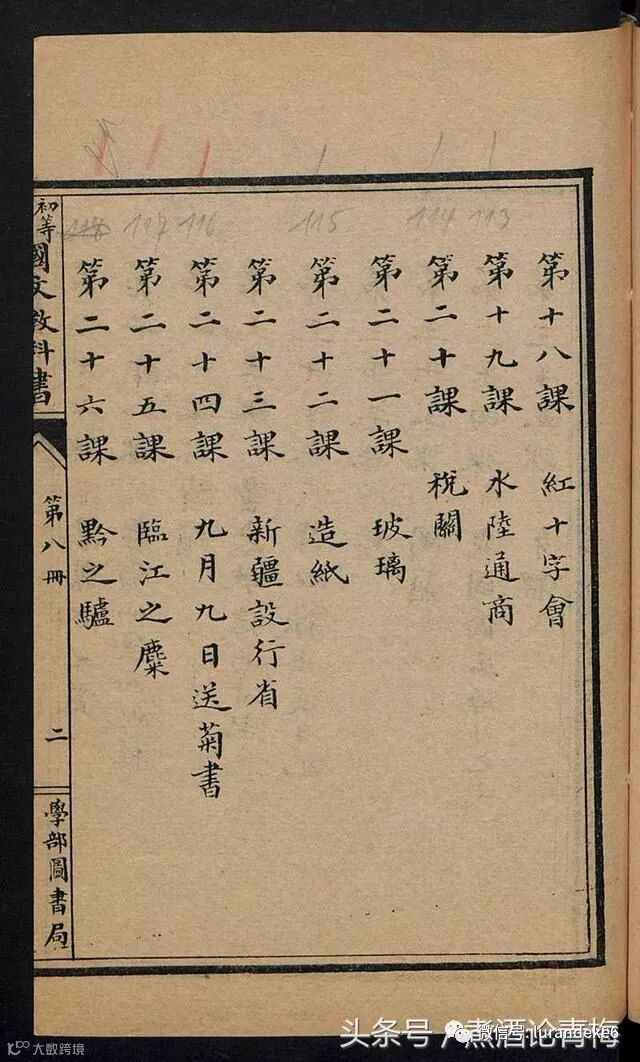 第十八課 紅十字會
第十九課 水陸通商
第二十課 稅關
第二十一課 玻璃
第二十二課 造紙
第二十三課 新疆設行省
第二十四課 九月九日送菊書
第二十五課 臨江之麋
第二十六課 黔之驢
初等國文教科書 第八冊 二 學部圖書局
113
114
115
116
117
118
头条号
微信号: lurandeke6
煮酒论青梅
大数跨境